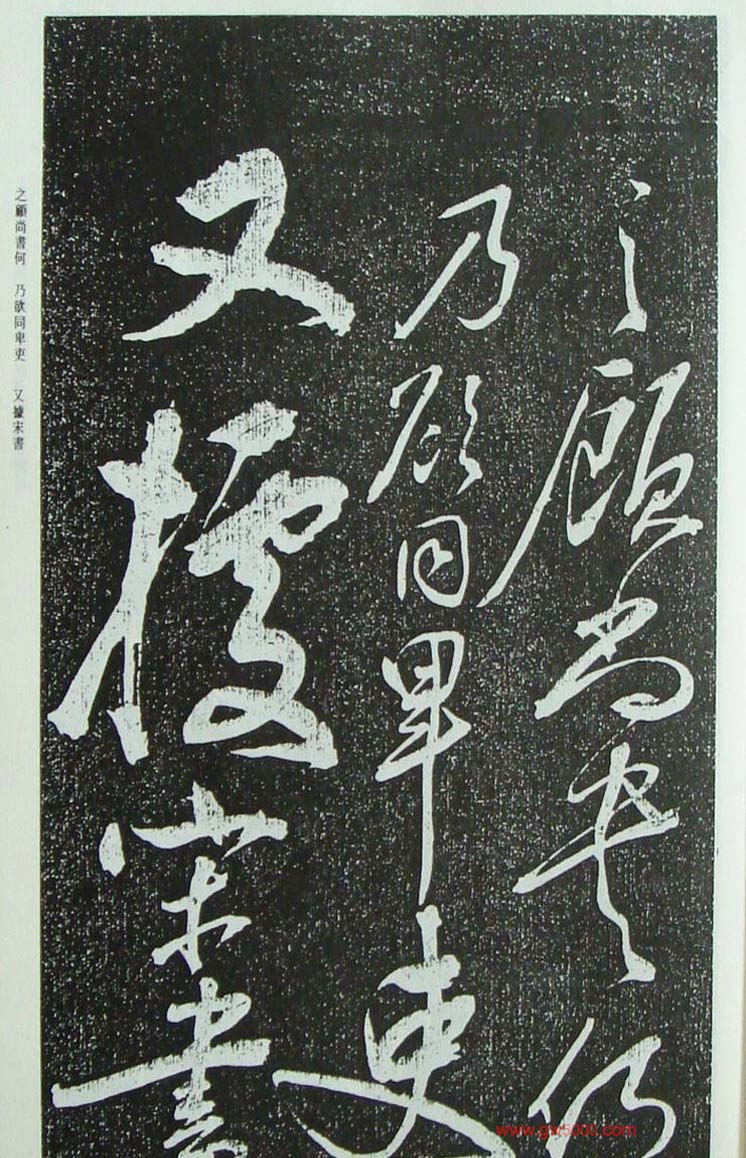 之顧尚書何
乃欲同卑吏
又據宋書
之顧尚書何 乃欲同卑吏 又據宋書
www.gw5000.com